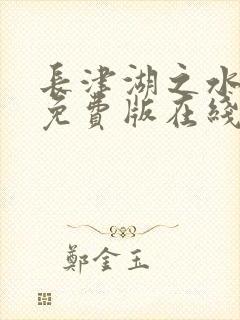 長津湖之水
免費版在綫
鄭金玉